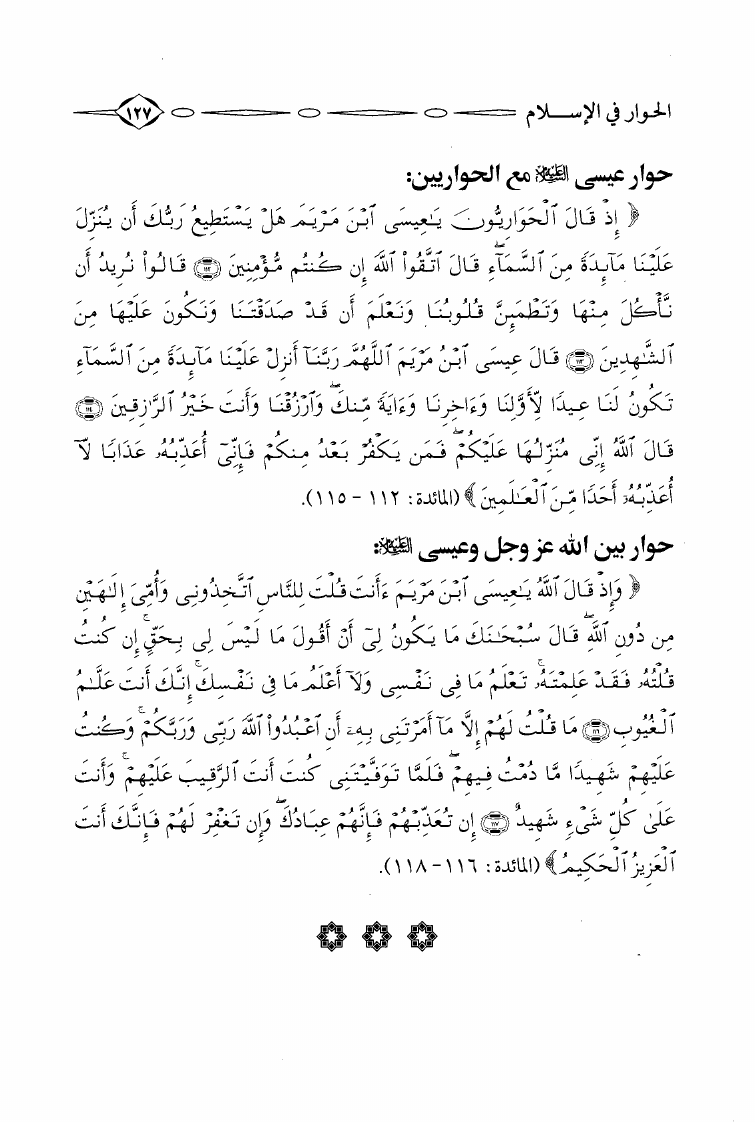 الحوار في الإســـلام ١٢٧
حوار عيسى عليه السلام مع الحواريين:
﴿ إِذْ قَالَ ٱلْحَوَارِيُّونَ يَـٰعِيسَى ٱبْنَ مَرْيَمَ هَلْ يَسْتَطِيعُ رَبُّكَ أَن يُنَزِّلَ
عَلَيْنَا مَآئِدَةً مِّنَ ٱلسَّمَآءِ ۖ قَالَ ٱتَّقُوا۟ ٱللَّهَ إِن كُنتُم مُّؤْمِنِينَ ١١٢ قَالُوا۟ نُرِيدُ أَن
نَّأْكُلَ مِنْهَا وَتَطْمَئِنَّ قُلُوبُنَا وَنَعْلَمَ أَن قَدْ صَدَقْتَنَا وَنَكُونَ عَلَيْهَا مِنَ
ٱلشَّـٰهِدِينَ ١١٣ قَالَ عِيسَى ٱبْنُ مَرْيَمَ ٱللَّهُمَّ رَبَّنَآ أَنزِلْ عَلَيْنَا مَآئِدَةً مِّنَ ٱلسَّمَآءِ
تَكُونُ لَنَا عِيدًا لِّأَوَّلِنَا وَءَاخِرِنَا وَءَايَةً مِّنكَ ۖ وَٱرْزُقْنَا وَأَنتَ خَيْرُ ٱلرَّٰزِقِينَ ١١٤
قَالَ ٱللَّهُ إِنِّى مُنَزِّلُهَا عَلَيْكُمْ ۖ فَمَن يَكْفُرْ بَعْدُ مِنكُمْ فَإِنِّىٓ أُعَذِّبُهُۥ عَذَابًا لَّآ
أُعَذِّبُهُۥٓ أَحَدًا مِّنَ ٱلْعَـٰلَمِينَ ﴾ (المائدة: ١١٢ - ١١٥).
حوار بين الله عز وجل وعيسى عليه السلام:
﴿ وَإِذْ قَالَ ٱللَّهُ يَـٰعِيسَى ٱبْنَ مَرْيَمَ ءَأَنتَ قُلْتَ لِلنَّاسِ ٱتَّخِذُونِى وَأُمِّىَ إِلَـٰهَيْنِ
مِن دُونِ ٱللَّهِ ۖ قَالَ سُبْحَـٰنَكَ مَا يَكُونُ لِىٓ أَنْ أَقُولَ مَا لَيْسَ لِى بِحَقٍّ ۚ إِن كُنتُ
قُلْتُهُۥ فَقَدْ عَلِمْتَهُۥ ۚ تَعْلَمُ مَا فِى نَفْسِى وَلَآ أَعْلَمُ مَا فِى نَفْسِكَ ۚ إِنَّكَ أَنتَ عَلَّـٰمُ
ٱلْغُيُوبِ ١١٦ مَا قُلْتُ لَهُمْ إِلَّا مَآ أَمَرْتَنِى بِهِۦٓ أَنِ ٱعْبُدُوا۟ ٱللَّهَ رَبِّى وَرَبَّكُمْ ۚ وَكُنتُ
عَلَيْهِمْ شَهِيدًا مَّا دُمْتُ فِيهِمْ ۖ فَلَمَّا تَوَفَّيْتَنِى كُنتَ أَنتَ ٱلرَّقِيبَ عَلَيْهِمْ ۚ وَأَنتَ
عَلَىٰ كُلِّ شَىْءٍ شَهِيدٌ ١١٧ إِن تُعَذِّبْهُمْ فَإِنَّهُمْ عِبَادُكَ ۖ وَإِن تَغْفِرْ لَهُمْ فَإِنَّكَ أَنتَ
ٱلْعَزِيزُ ٱلْحَكِيمُ ﴾ (المائدة: ١١٦ - ١١٨).